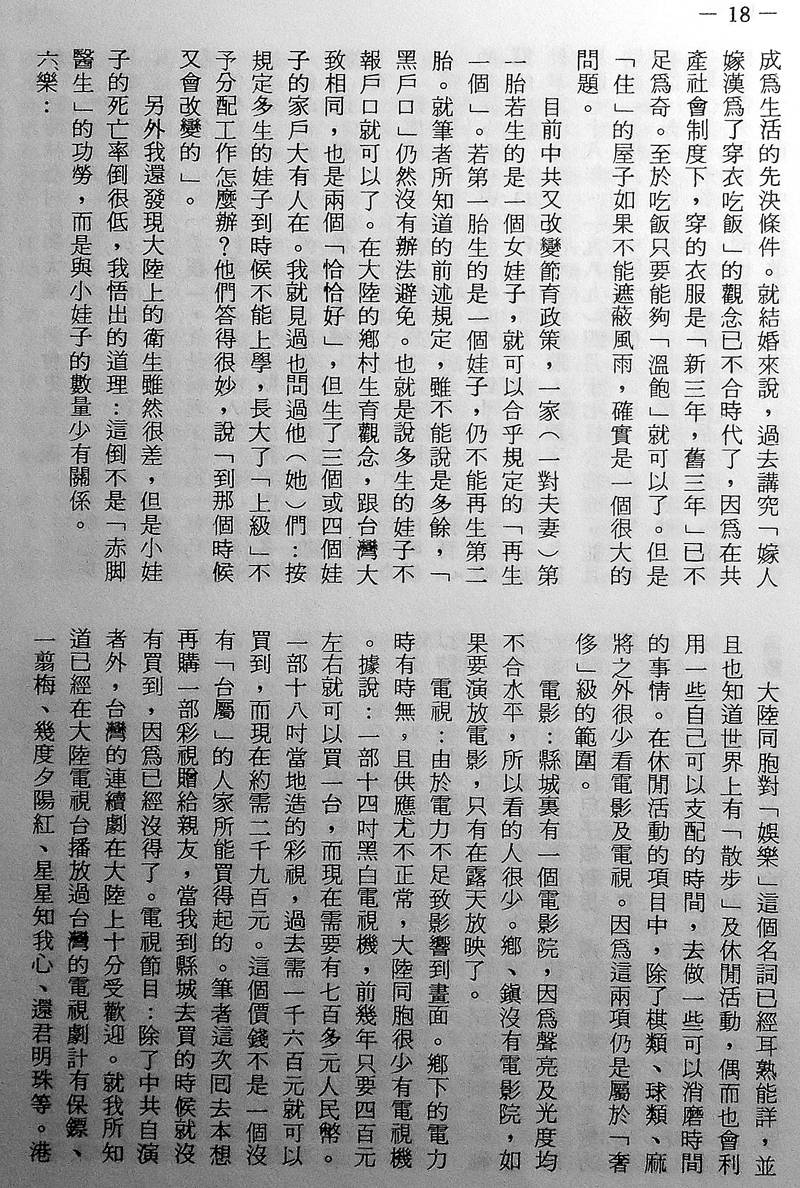 — 18 —
成爲生活的先決條件。就結婚來說，過去講究「嫁人
嫁漢爲了穿衣吃飯」的觀念已不合時代了，因爲在共
產社會制度下，穿的衣服是「新三年，舊三年」已不
足爲奇。至於吃飯只要能夠「溫飽」就可以了。但是
「住」的屋子如果不能遮蔽風雨，確實是一個很大的
問題。
目前中共又改變節育政策，一家（一對夫妻）第
一胎若生的是一個女娃子，就可以合乎規定的「再生
一個」。若第一胎生的是一個娃子，仍不能再生第二
胎。就筆者所知道的前述規定，雖不能說是多餘，「
黑戶口」仍然沒有辦法避免。也就是說多生的娃子不
報戶口就可以了。在大陸的鄉村生育觀念，跟台灣大
致相同，也是兩個「恰恰好」，但生了三個或四個娃
子的家戶大有人在。我就見過也問過他（她）們：按
規定多生的娃子到時候不能上學，長大了「上級」不
予分配工作怎麼辦？他們答得很妙，說「到那個時候
又會改變的」。
另外我還發現大陸上的衛生雖然很差，但是小娃
子的死亡率倒很低，我悟出的道理：這倒不是「赤脚
醫生」的功勞，而是與小娃子的數量少有關係。
六樂：
大陸同胞對「娛樂」這個名詞已經耳熟能詳，並
且也知道世界上有「散步」及休閒活動，偶而也會利
用一些自己可以支配的時間，去做一些可以消磨時間
的事情。在休閒活動的項目中，除了棋類、球類、麻
將之外很少看電影及電視。因爲這兩項仍是屬於「奢
侈」級的範圍。
電影：縣城裏有一個電影院，因爲聲亮及光度均
不合水平，所以看的人很少。鄉、鎮沒有電影院，如
果要演放電影，只有在露天放映了。
電視：由於電力不足致影響到畫面。鄉下的電力
時有時無，且供應尤不正常，大陸同胞很少有電視機
。據說：一部十四吋黑白電視機，前幾年只要四百元
左右就可以買一台，而現在需要有七百多元人民幣。
一部十八吋當地造的彩視，過去需一千六百元就可以
買到，而現在約需二千九百元。這個價錢不是一個沒
有「台屬」的人家所能買得起的。筆者這次回去本想
再購一部彩視贈給親友，當我到縣城去買的時候就沒
有買到，因爲已經沒得了。電視節目：除了中共自演
者外，台灣的連續劇在大陸上十分受歡迎。就我所知
道已經在大陸電視台播放過台灣的電視劇計有保鏢、
一翦梅、幾度夕陽紅、星星知我心、還君明珠等。港